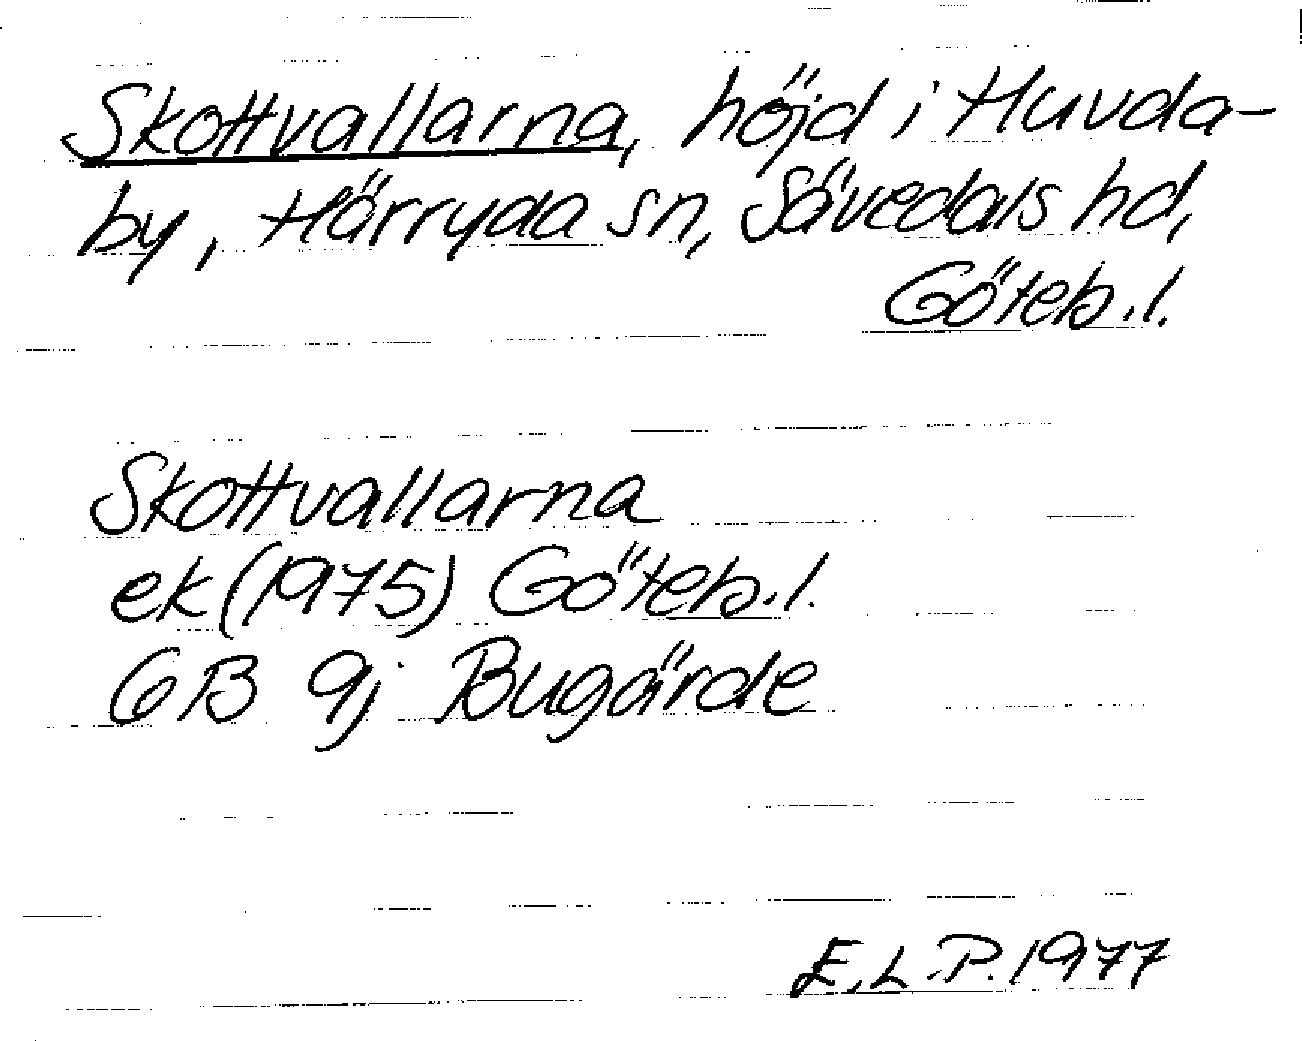 Skottvallarna, höjd i Huvda-
by, Härryda sn, Sävedals hd,
Göteb.l.
Skottvallarna
ek (1975) Göteb.l.
6B 9j Bugärde
E.L.P. 1977